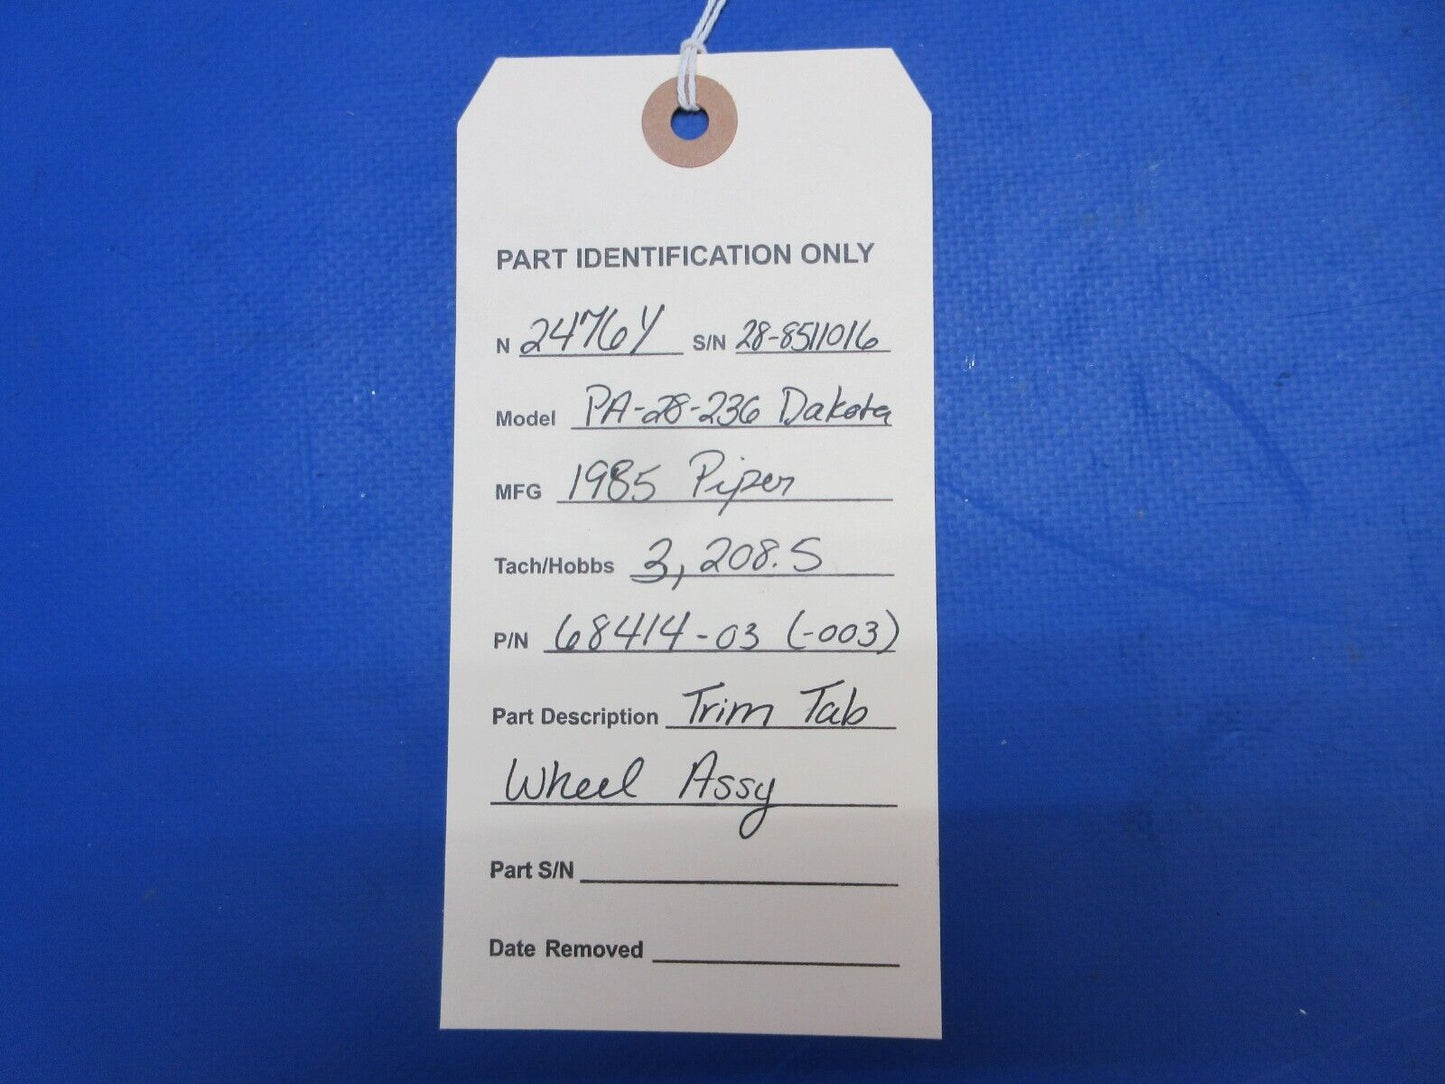 PART IDENTIFICATION ONLY
N 2476Y S/N 28-8511016
Model PA-28-236 Dakota
MFG 1985 Piper
Tach/Hobbs 3,208.5
P/N 68414-03 (-003)
Part Description Trim Tab
Wheel Assy
Part S/N
Date Removed